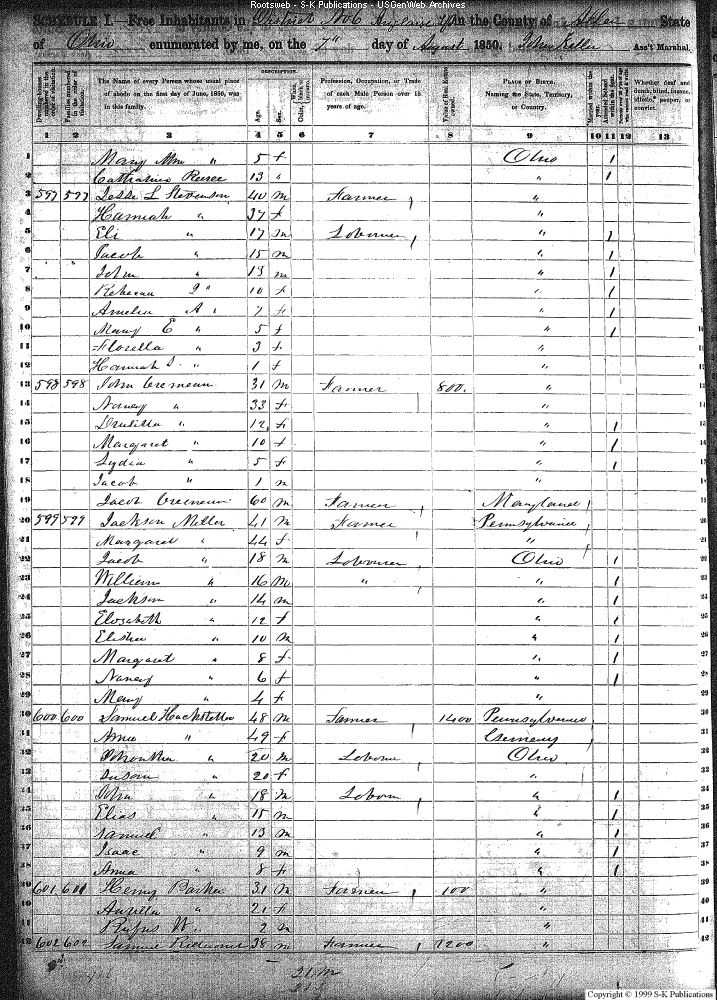 Rootsweb - S-K Publications - USGenWeb Archives
SCHEDULE I.—Free Inhabitants in District No 6 in the County of Allen State
of Ohio enumerated by me, on the 7th day of August 1850. John Keller Ass't Marshal.
Dwelling-houses numbered in the order of visitation. Families numbered in the order of visitation. The Name of every Person whose usual place of abode on the first day of June, 1850, was in this family. DESCRIPTION. Age. Sex. Profession, Occupation, or Trade of each Male Person over 15 years of age. Value of Real Estate owned. PLACE OF BIRTH. Naming the State, Territory, or Country. Married within the year. Attended School within the year. Whether deaf and dumb, blind, insane, idiotic, pauper, or convict.
1 2 3 4 5 6 7 8 9 10 11 12 13
1 Mary Ann " 5 f Ohio 1 1
2 Catharine Reese 13 " " 1 2
3 597 597 Jesse L Stevenson 40 m Farmer " 3
4 Hannah " 37 f " 4
5 Eli " 17 m Laborer " 1 5
6 Jacob " 15 m " 1 6
7 John " 13 m " 1 7
8 Rebecca J " 10 f " 1 8
9 Amelia A " 7 f " 1 9
10 Mary E " 5 f " 1 10
11 Florella " 3 f " 11
12 Hannah S. " 1 f " 12
13 598 598 John Cremeun 31 m Farmer 800. " 13
14 Nancy " 33 f " 14
15 Drusilla " 12 f " 1 15
16 Margaret " 10 f " 1 16
17 Lydia " 5 f " 1 17
18 Jacob " 1 m " 18
19 Jacob Cremeun 60 m Farmer Maryland 19
20 599 599 Jackson Miller 41 m Farmer Pennsylvania 20
21 Margaret " 44 f " 21
22 Jacob " 18 m Laborer Ohio 1 22
23 William " 16 m " " 1 23
24 Jackson " 14 m " 1 24
25 Elizabeth " 12 f " 1 25
26 Elisha " 10 m " 1 26
27 Margaret " 8 f " 1 27
28 Nancy " 6 f " 1 28
29 Mary " 4 f " 29
30 600 600 Samuel Hochstetler 48 m Farmer 1400 Pennsylvania 30
31 Anna " 49 f Germany 31
32 " 20 m Laborer Ohio 32
33 Susan " 20 f " 33
34 John " 18 m Labor " 1 34
35 Elias " 15 m " 1 35
36 Samuel " 13 m " 1 36
37 Isaac " 9 m " 1 37
38 Anna " 8 f " 1 38
39 601 601 Henry Barker 31 m Farmer 100 " 39
40 Aurilla " 21 f " 40
41 Rufus W. " 2 m " 41
42 602 602 Samuel Ridenour 38 m Farmer 1200 " 42
21 m
21 f
Copyright © 1999 S-K Publications